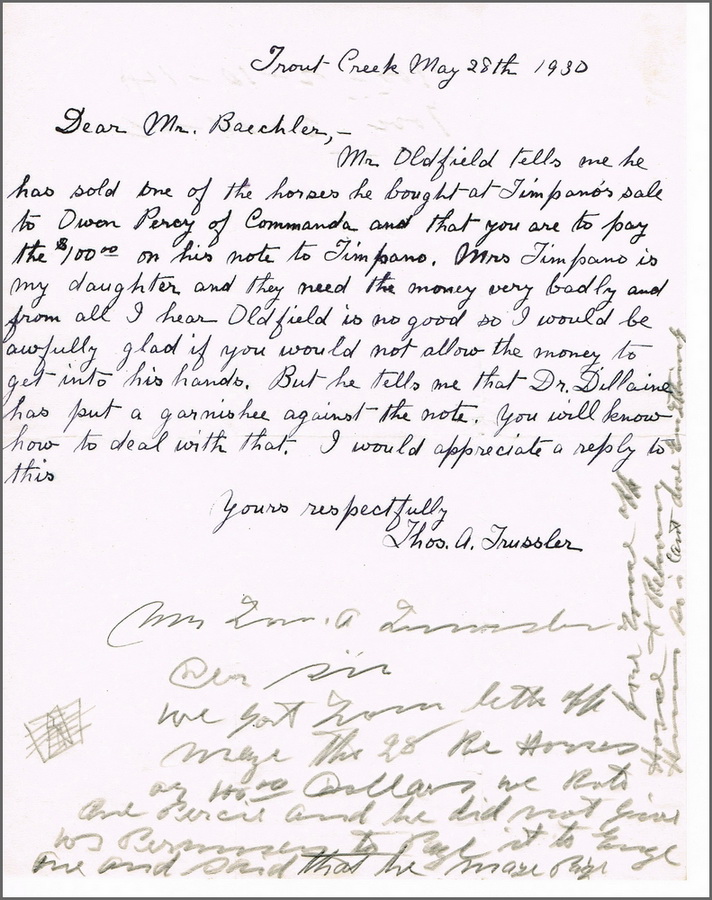 Trout Creek May 28th 1930
Dear Mr. Baechler,-
Mr. Oldfield tells me he
has sold one of the horses he bought at Timpano's sale
to Owen Percy of Commanda and that you are to pay
the $100.00 on his note to Timpano. Mrs Timpano is
my daughter and they need the money very badly and
from all I hear Oldfield is no good so I would be
awfully glad if you would not allow the money to
get into his hands. But he tells me that Dr. Dillaine
has put a garnishee against the note. You will know
how to deal with that. I would appreciate a reply to
this
Yours respectfully
Thos. A. Trussler
A
Dear Sir
we got letter off
the 28 Re Horses
Dollars we
and he did not give
to it to
one and said that he